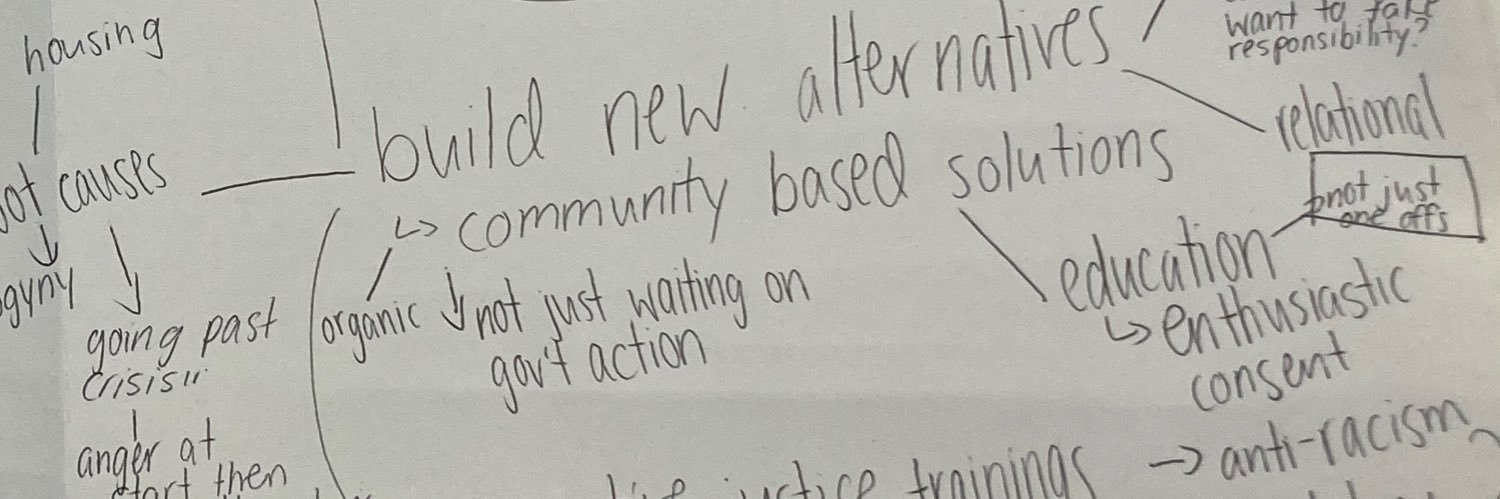 housing
causes
going past
crisis"
anger at
then
build new alternatives
↳ community based solutions
organic
↳ not just waiting on
gov't action
want to take
responsibility?
relational
not just
one offs
education
↳ enthusiastic
consent
justice trainings → anti-racism